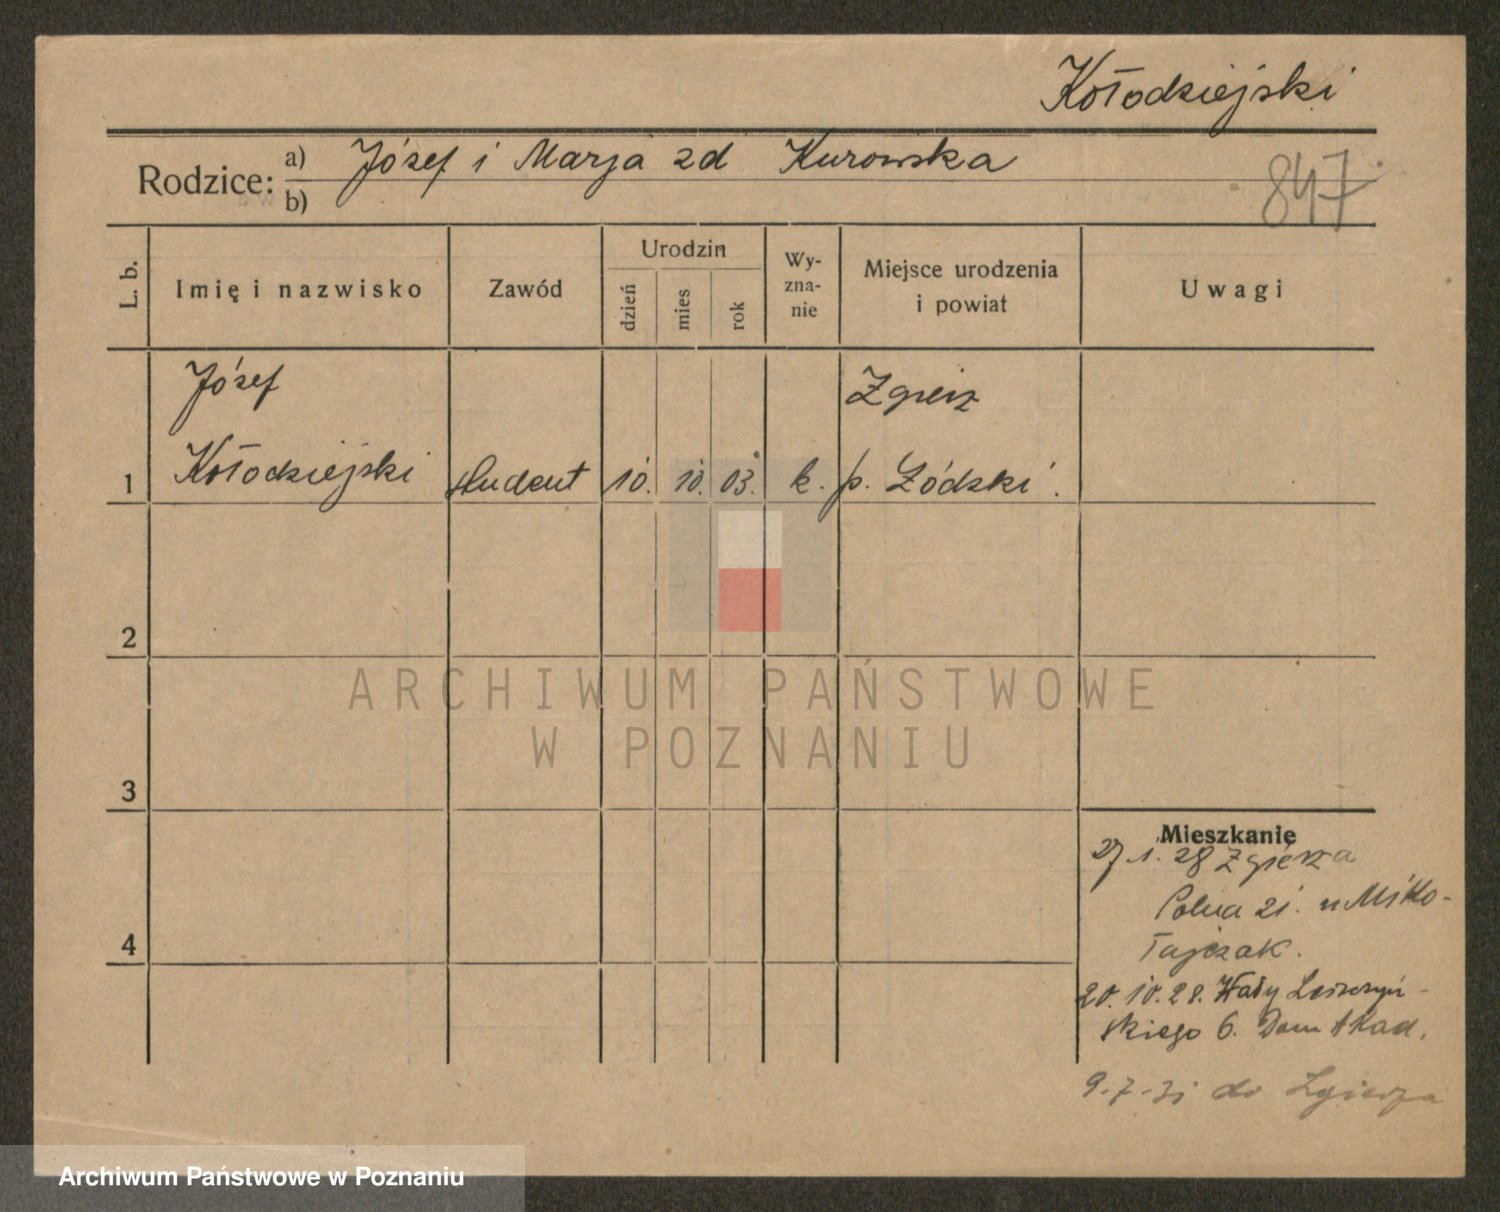 Kołodziejski
Rodzice: a) Józef i Marja zd Kurowska
b)
847
L. b.
Imię i nazwisko
Zawód
Urodzin
dzień
mies
rok
Wy-
zna-
nie
Miejsce urodzenia
i powiat
Uwagi
Józef
Zgierz
1 Kołodziejski student 10. 10. 03. k. p. Łódzki.
2
3
4
ARCHIWUM PAŃSTWOWE
W POZNANIU
Mieszkanie
27.1.28 Zgierza
Polna 21. u Miko-
łajczak.
20.10.28. Wały Leszczyń-
skiego 6. Dom Akad.
9-7-31 do Zgierza
Archiwum Państwowe w Poznaniu